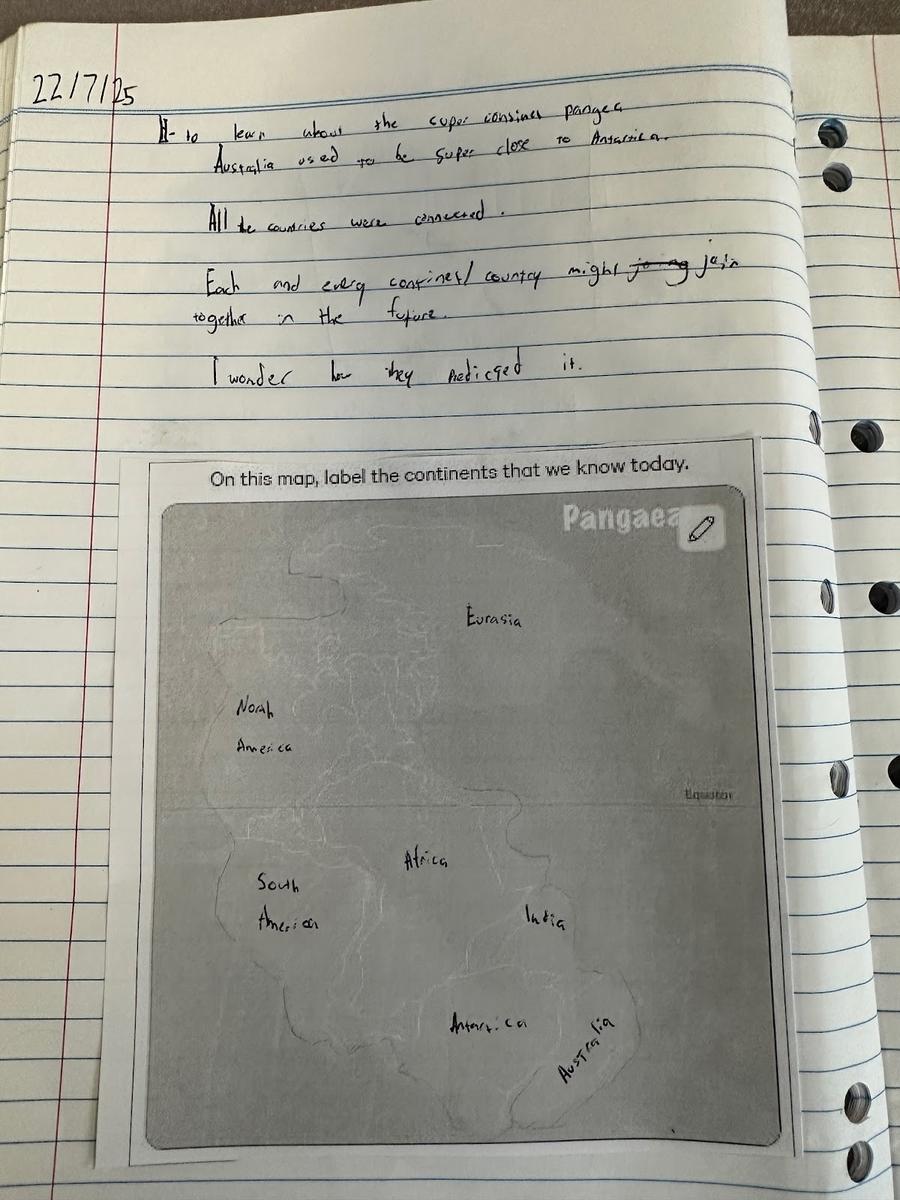 22/7/25
to learn about the super continet pangea
Australia used to be super close to Antartica.
All the countries were connected.
Each and every continet/country might join
together in the future.
I wonder how they predicted it.
On this map, label the continents that we know today.
Pangaea
Eurasia
North
America
Equator
Africa
South
America
India
Antartica
Australia